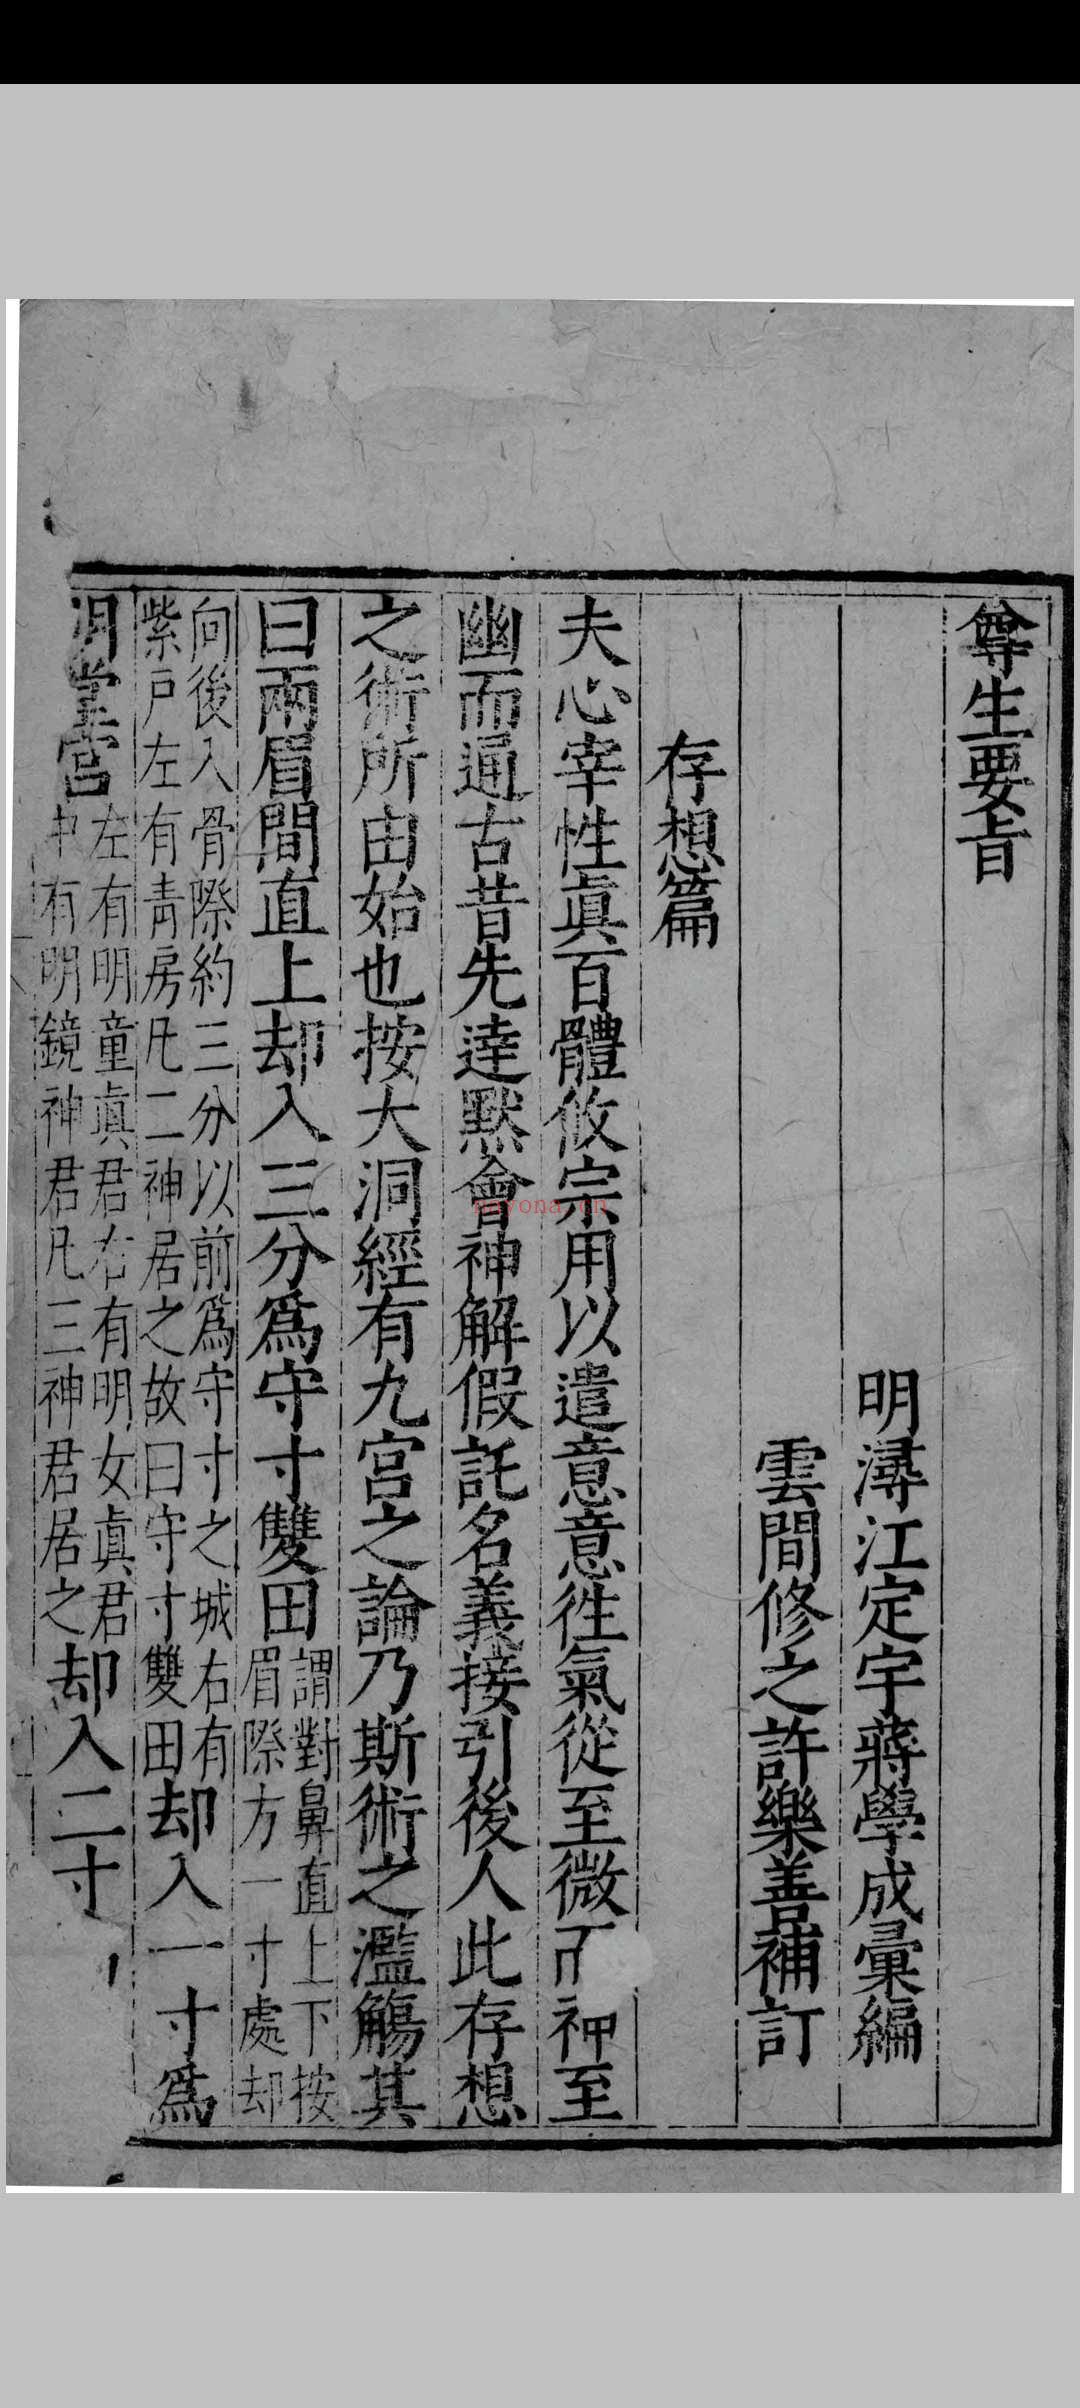 尊生要旨
明潯江定宇蔣學成彙編
雲間修之許樂善補訂
存想篇
夫心宰性眞百體攸宗用以遣意意徃氣從至微而神至
幽而通古昔先達黙會神解假託名義接引後人此存想
之術所由始也按大洞經有九宮之論乃斯術之濫觴其
曰兩眉間直上却入三分爲守寸雙田謂對鼻直上下按
眉際方一寸處却
向後入骨際約三分以前爲守寸之城右有
紫戸左有青房凡二神居之故曰守寸雙田却入一寸爲
明堂宮左有明童眞君右有明女眞君
中有明鏡神君凡三神君居之却入二寸
nayona.cn